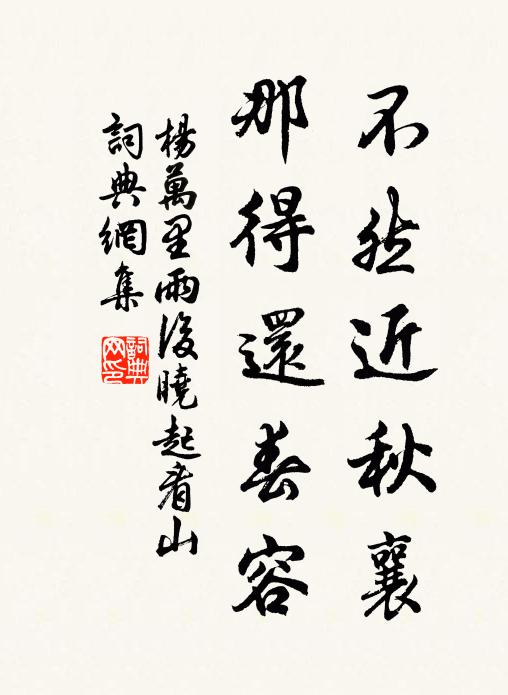 不然近秋襄
那得還春容
楊萬里雨後曉起看山
詞典網集
詞典网印